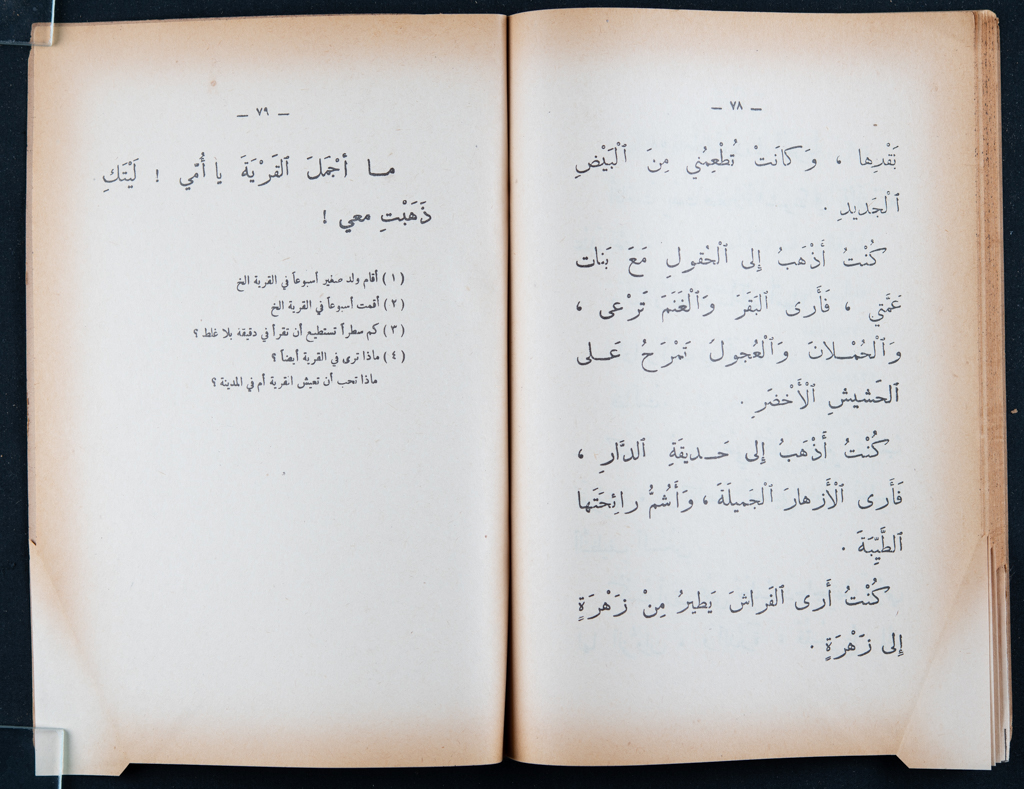 — ٧٨ —
بَقْدِها ، وَكانَتْ تُطْعِمُني مِنَ ٱلْبَيْضِ
ٱلْجَديدِ .
كُنْتُ أَذْهَبُ إِلى ٱلْحُقولِ مَعَ بَنات
عَمَّتي ، فَأَرى ٱلبَقَرَ وَٱلْغَنَمَ تَرْعى ،
وَٱلْحُمْلانَ وَٱلْعُجولَ تَمْرَحُ عَلى
ٱلحَشيشِ ٱلْأَخْضَرِ .
كُنْتُ أَذْهَبُ إِلى حَديقَةِ ٱلدَّارِ ،
فَأَرى ٱلْأَزهارَ ٱلْجَميلَةَ ، وَأَشُمُّ رائِحَتَها
ٱلطَّيِّبَةَ .
كُنْتُ أَرى ٱلفَراشَ يَطيرُ مِنْ زَهْرَةٍ
إِلى زَهْرَةٍ .
— ٧٩ —
ما أَجْمَلَ ٱلقَرْيَةَ يا أُمّي ! لَيْتَكِ
ذَهَبْتِ معي !
( ١ ) أقام ولد صغير أسبوعاً في القرية الخ
( ٢ ) أقمت أسبوعاً في القرية الخ
( ٣ ) كم سطراً تستطيع أن تقرأ في دقيقة بلا غلط ؟
( ٤ ) ماذا ترى في القرية أيضاً ؟
ماذا تحب أن تعيش انقرية أم في المدينة ؟